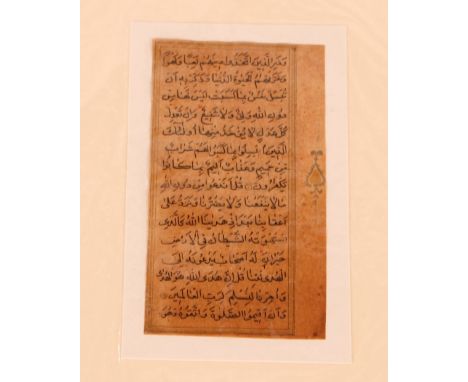 وذر الذين اتخذوا دينهم لعبا ولهوا
وغرتهم الحيوة الدنيا وذكر به ان
تبسل نفس بما كسبت ليس لها من
دون الله ولي ولا شفيع وان تعدل
كل عدل لا يؤخذ منها اولئك
الذين ابسلوا بما كسبوا لهم شراب
من حميم وعذاب اليم بما كانوا
يكفرون قل اندعوا من دون الله
ما لا ينفعنا ولا يضرنا ونرد على
اعقابنا بعد اذ هدينا الله كالذي
استهوته الشيطان في الارض
حيران له اصحاب يدعونه الى
الهدى ائتنا قل ان هدى الله هو الهدى
وامرنا لنسلم لرب العالمين
وان اقيموا الصلوة واتقوه وهو